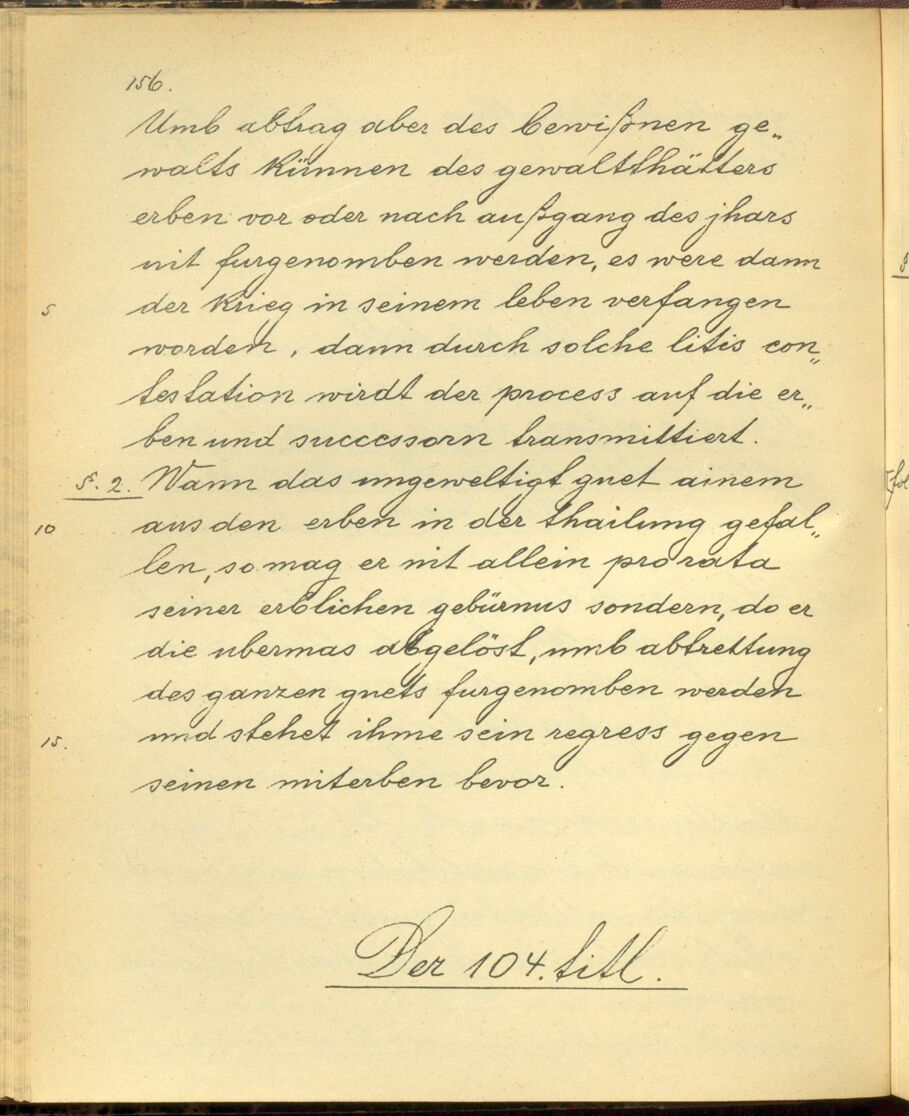 156.
Umb abtrag aber des bewißnen ge„
walts künnen des gewaltthätters
erben vor oder nach außgang des jhars
nit furgenomben werden, es were dann
5 der krieg in seinem leben verfangen
worden, dann durch solche litis con„
testation wirdt der process auf die er„
ben und successorn transmittiert.
§. 2. Wann das ungeweltigt guet ainem
10 aus den erben in der thailung gefal„
len, so mag er nit allein pro rata
seiner erblichen gebürnus sondern, do er
die ubermas abgelöst, umb abtrettung
des ganzen guets furgenomben werden
15. und stehet ihme sein regress gegen
seinen miterben bevor.
Der 104. titl.